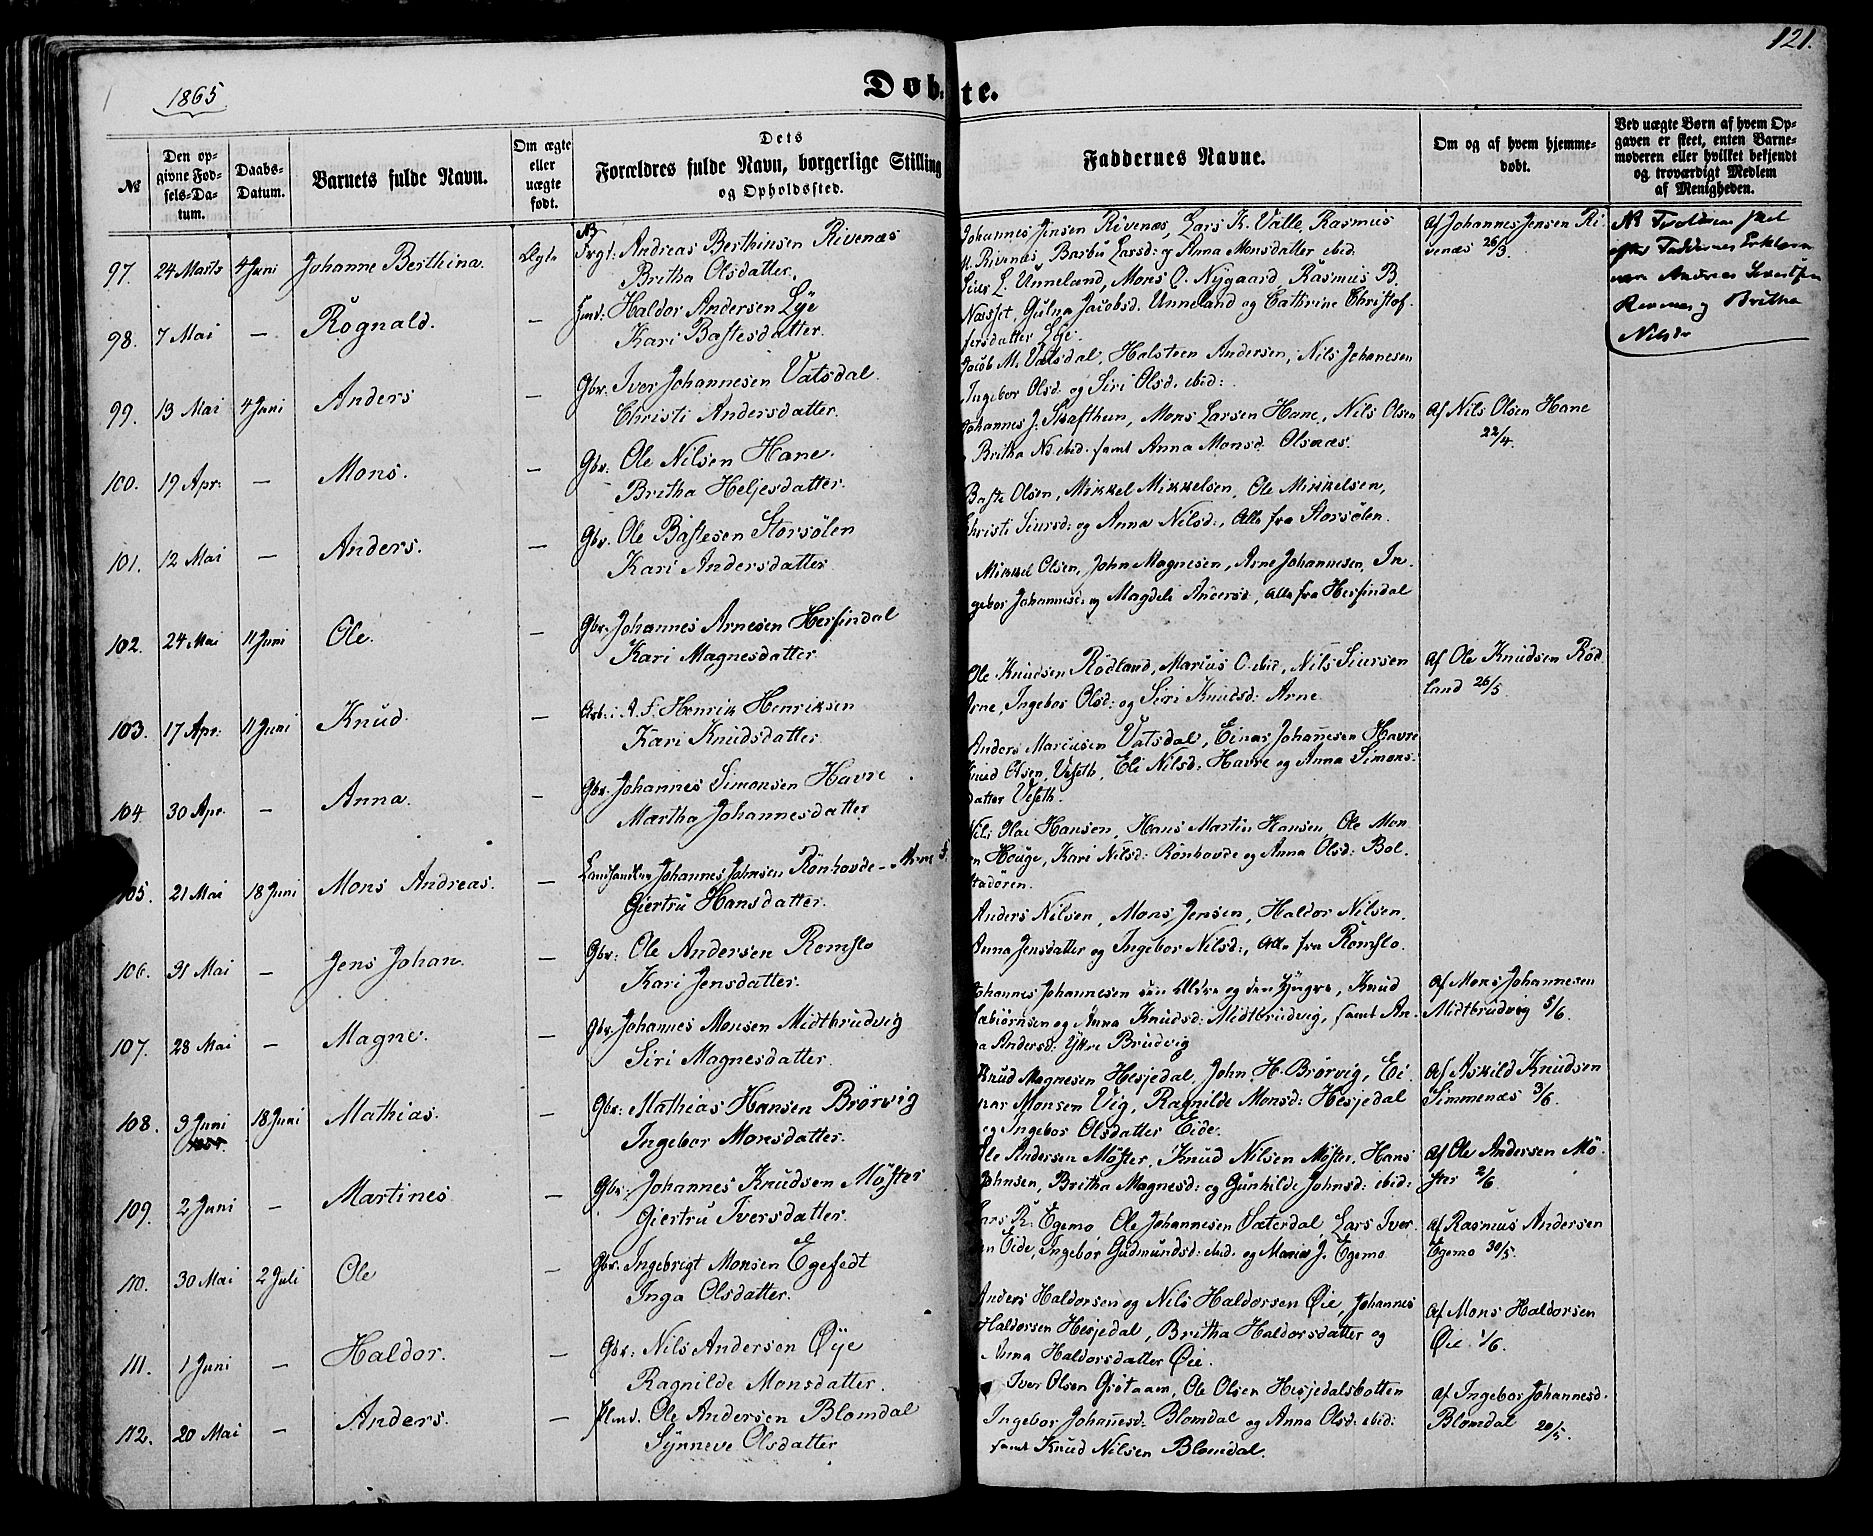 121.
1865
Døbte.
№
Den opgivne Fødsels-Datum.
Daabs-Datum.
Barnets fulde Navn.
Om ægte eller uægte født.
Dets Forældres fulde Navn, borgerlige Stilling og Opholdssted.
Faddernes Navne.
Om og af hvem hjemmedøbt.
Ved uægte Børn af hvem Opgaven er skeet, enten Barnemoderen eller hvilket bekjendt og troværdigt Medlem af Menigheden.
97. 24 Marts 4 Juni Johanne Berthina. Ægte NB Andreas Berthinsen Rivenæs
Britha Olsdatter.
Johannes Jensen Rivenæs, Lars K. Valle, Rasmus
Rivenæs, Barbu Larsd: og Anna Monsdatter ibid.
Af Johannes Jensen Rivenæs 26/3.
NB
98. 7 Mai — Rognald. — Haldor Andersen Lye
Kari Bastesdatter.
L. Unneland, Mons O. Nygaard, Rasmus B.
Næsset, Gulna Jacobsd. Unneland og Cathrine Christoffersdatter Lye.
99. 13 Mai 4 Juni Anders — Gbr. Iver Johannesen Vatsdal.
Christi Andersdatter.
Jacob M. Vatsdal, Halsteen Andersen, Nils Johanesen
Ingebor Olsd. og Siri Olsd. ibid:
100. 19 Apr: — Mons. — Gbr. Ole Nilsen Hane.
Britha Heljesdatter.
Johannes J. Skafthun, Mons Larsen Hane, Nils Olsen
Britha Nd. ibid. samt Anna Monsd. Olsnæs.
Af Nils Olsen Hane
22/4.
101. 12 Mai — Anders. — Gbr. Ole Bastesen Storsølen
Kari Andersdatter
Baste Olsen, Mikkel Mikkelsen, Ole Mikkelsen,
Christi Siursd: og Anna Nilsd:, Alle fra Storsølen.
102. 24 Mai 11 Juni Ole. — Gbr. Johannes Arnesen Herfindal
Kari Magnesdatter
Mikkel Olsen, John Magnesen, Arne Johannesen, Ingebor Johannesd: og Magdeli Andersd, Alle fra Herfindal
103. 17 Apr: 11 Juni Knud. — Arb: i A. F. Henrik Henriksen
Kari Knudsdatter
Ole Knudsen Rødland, Marius O. ibid, Nils Siursen
Arne, Ingebor Olsd: og Siri Knudsd: Arne
Af Ole Knudsen Rødland 26/5.
104 30 Apr. — Anna. — Gbr. Johannes Simonsen Havre
Martha Johannesdatter
Anders Marcusen Vatsdal, Einar Johanesen Havre
Knud Olsen, Veseth, Eli Nilsd: Havre og Anna Simonsdatter Veseth.
105. 21 Mai 18 Juni Mons Andreas. — Landhandler Johannes Johnsen Rønhovde - Arne F.
Giertru Hansdatter.
Nils Olai Hansen, Hans Martin Hansen, Ole Monsen Houge, Kari Nilsd: Rønhovde og Anna Olsd: Bolstadøren.
106. 31 Mai — Jens Johan. — Gbr: Ole Andersen Romslo
Kari Jensdatter.
Anders Nilsen, Mons Jensen, Haldor Nilsen.
Anna Jensdatter og Ingebor Nilsd:, Alle fra Romslo.
107. 28 Mai — Magne. — Gbr Johannes Monsen Midtbrudvig
Siri Magnesdatter.
Johannes Johannesen den Ældre og den Yngre, Knud
og Anna Knudsd: Midtbrudvig, samt Anna Andersd: Yttre Brudvig
Af Mons Johannesen
Midtbrudvig 5/6.
108. 9 Juni 18 Juni Mathias. — Gbr: Mathias Hansen Brørvig
Ingebor Monsdatter.
Knud Magnesen Hesjedal, John H. Brørvig, Einar Monsen Vig, Ragnilde Monsd: Hesjedal
og Ingebor Olsdatter Eide.
Af Askild Knudsen
Simmenæs 3/6.
109. 2 Juni — Martines — Gbr. Johannes Knudsen Møster
Giertru Iversdatter.
Ole Andersen Møster, Knud Nilsen Møster, Hans
Johnsen, Britha Magnesd: og Gunhilde Johnsd: ibid:
Af Ole Andersen Møster 2/6.
110. 30 Mai 2 Juli Ole — Gbr. Ingebrigt Monsen Egefedt
Inga Olsdatter.
Lars R. Egemo, Ole Johannesen Sæterdal, Lars Iversen Eide, Ingebor Gudmundsd: ibid. og Maria J. Egemo
Af Rasmus Andersen
Egemo 30/5.
111. 1 Juni — Haldor. — Gbr: Nils Andersen Øye
Ragnilde Monsdatter.
Anders Haldorsen og Nils Haldorsen Øie, Johannes
Haldorsen Hesjedal, Britha Haldorsdatter og
Anna Haldorsdatter Øie.
Af Mons Haldorsen
Øie. 1/6.
112. 20 Mai — Anders. — Plmd. Ole Andersen Blomdal
Synneve Olsdatter
Iver Olsen Grøtaam, Ole Olsen Hesjedalsbotten
Ingebor Johanesd. Blomdal og Anna Olsd: ibid:
samt Knud Nilsen Blomdal.
Af Ingebor Johannesd.
Blomdal 20/5.